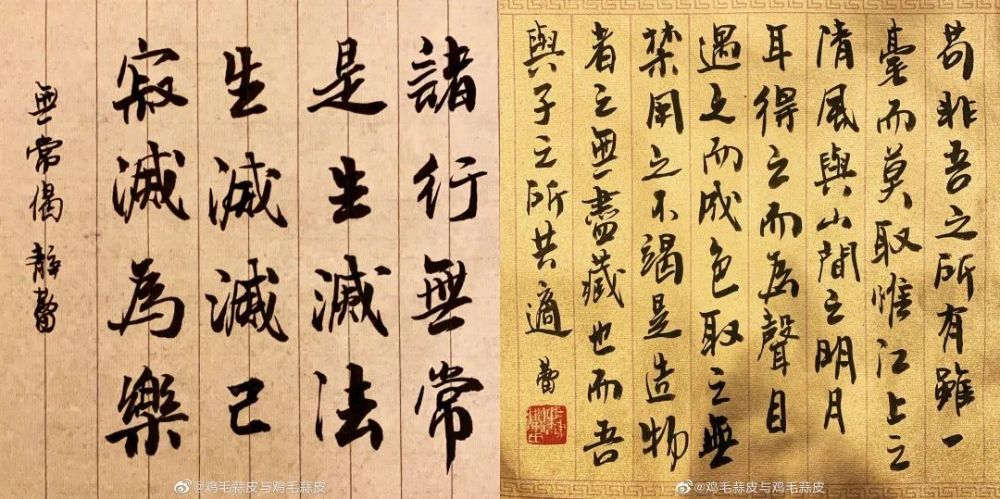 諸行無常
是生滅法
生滅滅己
寂滅為樂
無常偈 靜蕾
@鸡毛蒜皮与鸡毛蒜皮
苟非吾之所有雖一
毫而莫取惟江上之
清風與山間之明月
耳得之而為聲目
遇之而成色取之無
禁用之不竭是造物
者之無盡藏也而吾
與子之所共適 蕾
@鸡毛蒜皮与鸡毛蒜皮